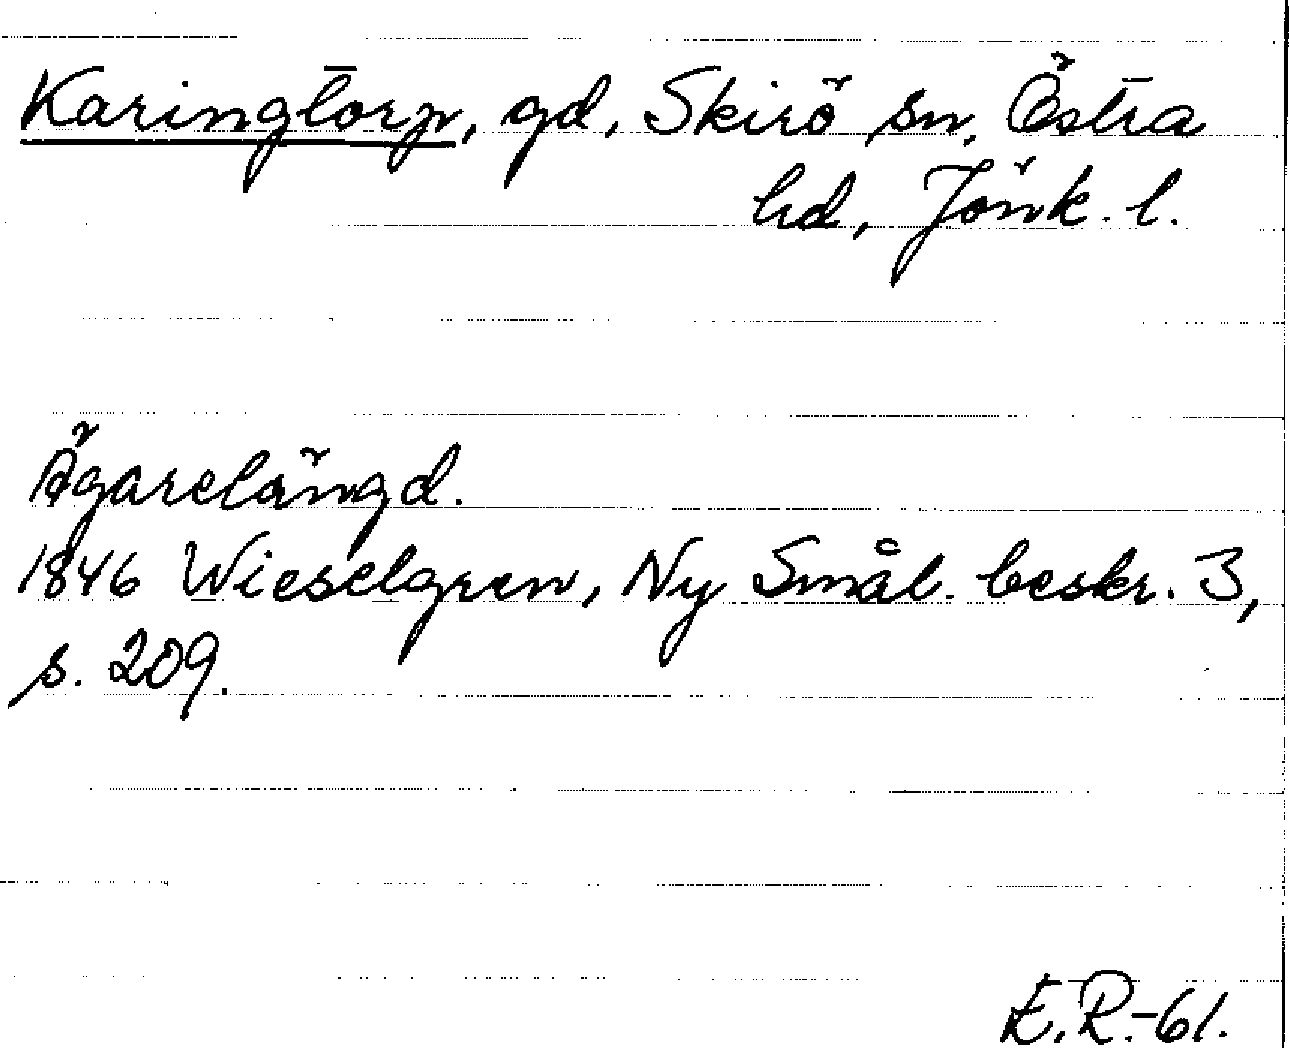 Karingtorp, gd, Skirö sn, Östra
hd, Jönk. l.
Ägarelängd.
1846 Wieselgren, Ny Smål. beskr. 3,
s. 209.
E.R.-61.